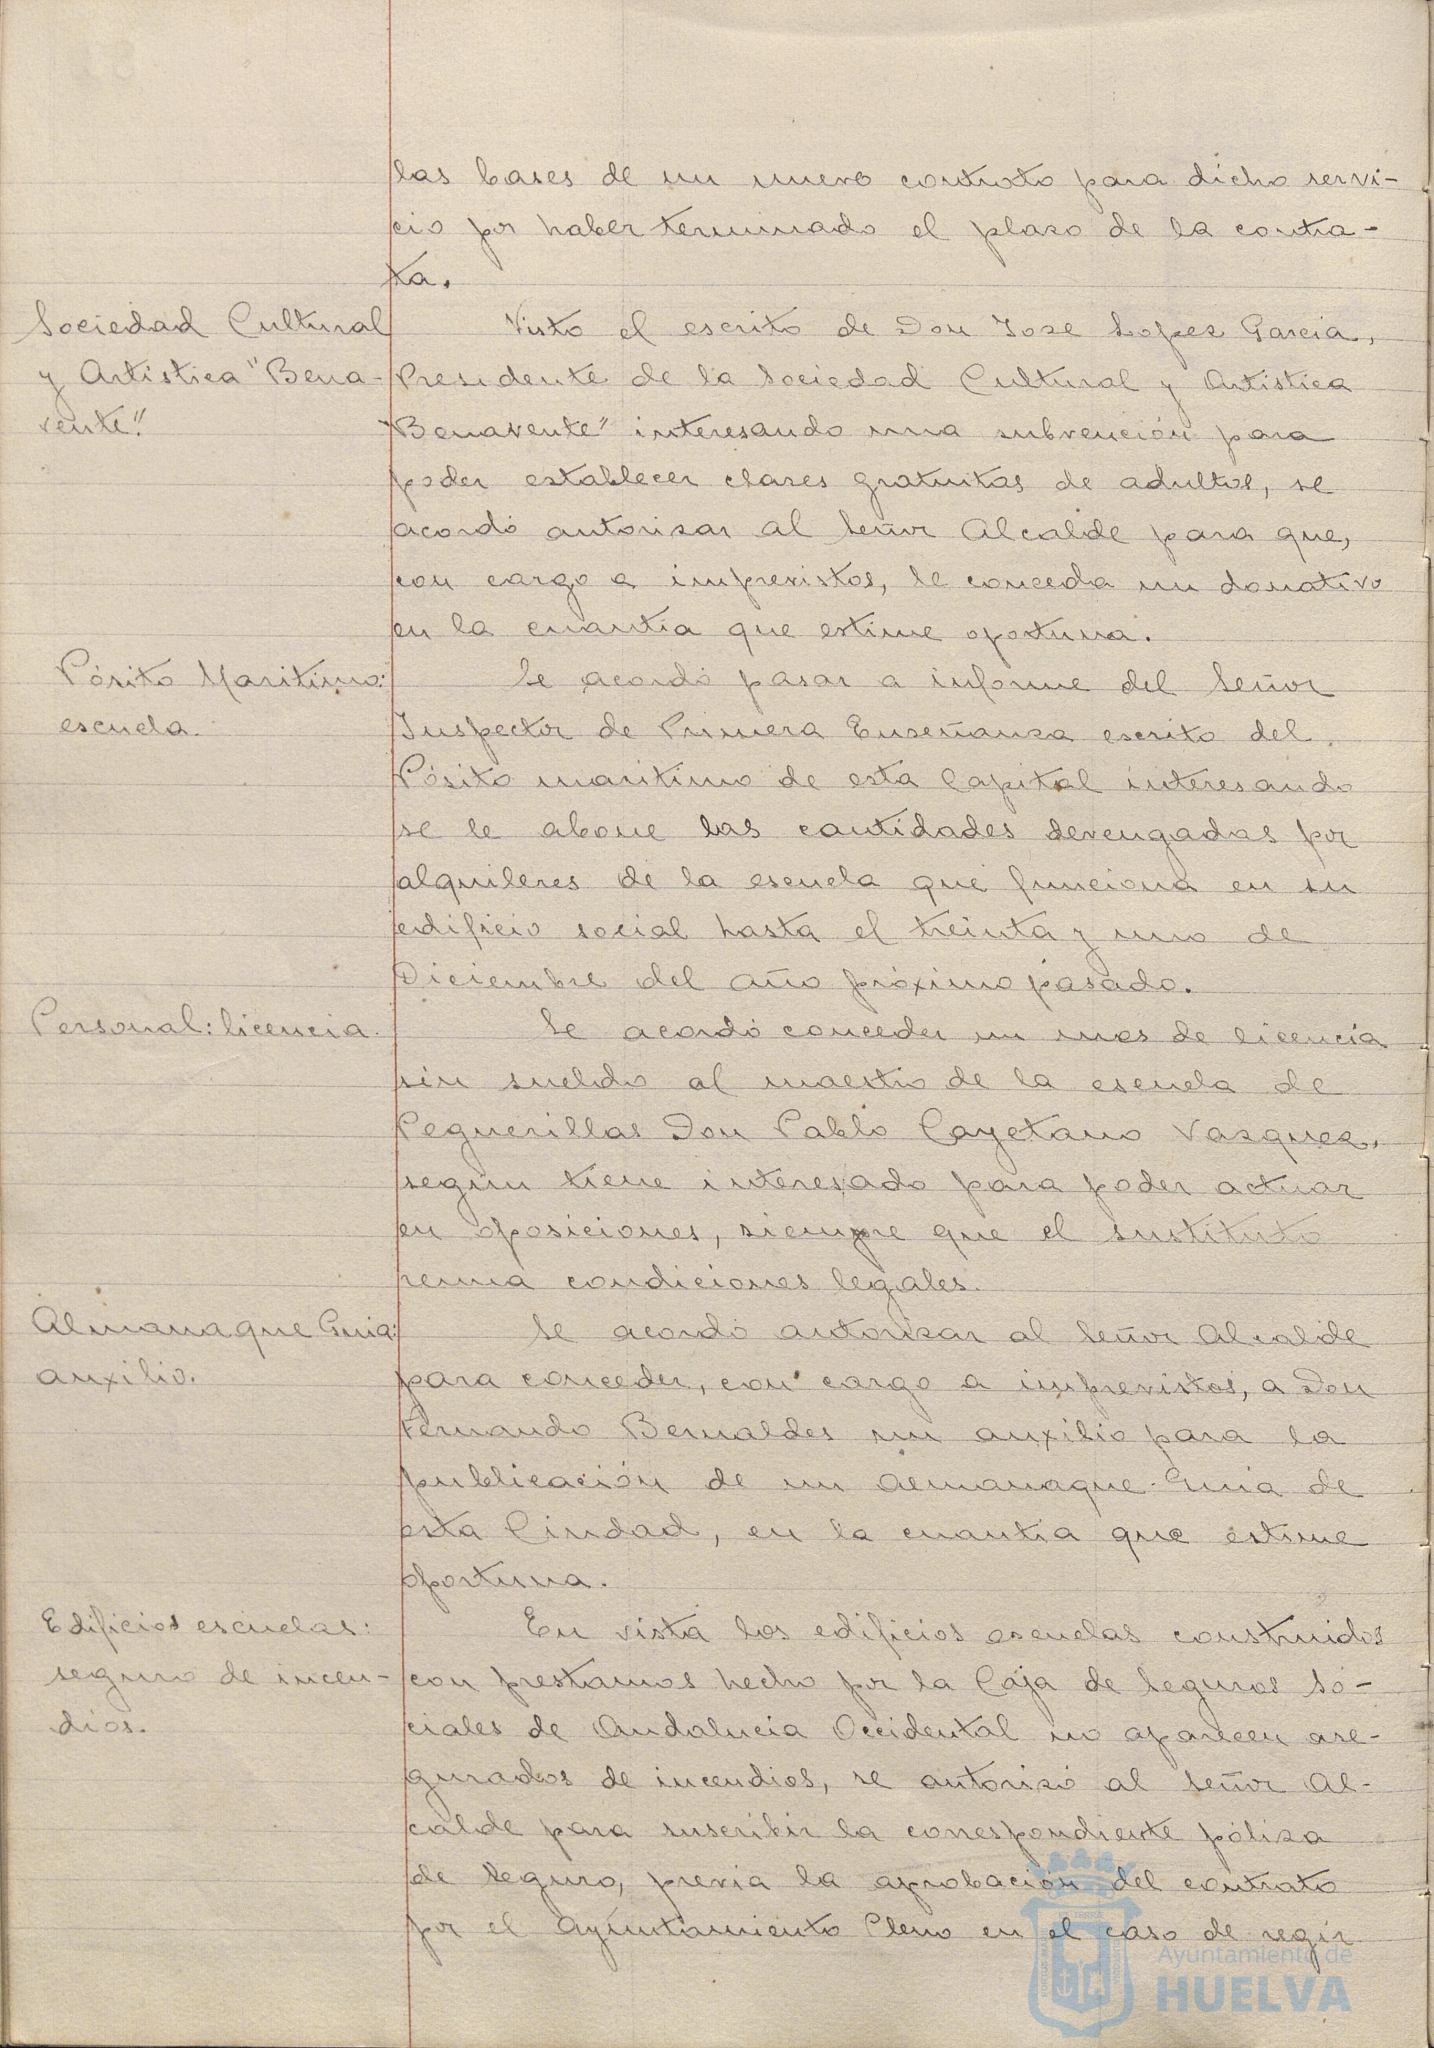 las bases de un nuevo contrato para dicho servi-
cio por haber terminado el plaso de la contra-
ta.
Sociedad Cultural
y Artistica "Bena-
vente".
Visto el escrito de Don Jose Lopez Garcia,
Presidente de la Sociedad Cultural y Artistica
"Benavente" interesando una subvención para
poder establecer clases gratuitas de adultos, se
acordó autorisar al Señor Alcalde para que,
con cargo a imprevistos, le conceda un donativo
en la cuantia que estime oportuna.
Pósito Maritimo:
escuela.
Se acordó pasar a informe del Señor
Inspector de Primera Enseñansa escrito del
Pósito maritimo de esta Capital interesando
se le abone las cantidades devengadas por
alquileres de la escuela que funciona en su
edificio social hasta el treinta y uno de
Diciembre del año próximo pasado.
Personal: licencia.
Se acordó conceder un mes de licencia
sin sueldo al maestro de la escuela de
Peguerillas Don Pablo Cayetano Vasquez,
según tiene interesado para poder actuar
en oposiciones, siempre que el sustituto
reuna condiciones legales.
Almanaque Guia:
auxilio.
Se acordó autorisar al Señor Alcalde
para conceder, con cargo a imprevistos, a Don
Fernando Bernaldes un auxilio para la
publicación de un Almanaque-Guia de
esta Ciudad, en la cuantia que estime
oportuna.
Edificios escuelas:
seguro de incen-
dios.
En vista los edificios escuelas construidos
con prestamos hecho por la Caja de Seguros So-
ciales de Andalucia Occidental no aparecen ase-
gurados de incendios, se autorisó al Señor Al-
calde para suscribir la correspondiente pólisa
de Seguro, previa la aprobación del contrato
por el Ayuntamiento Pleno en el caso de regir
Ayuntamiento de
HUELVA